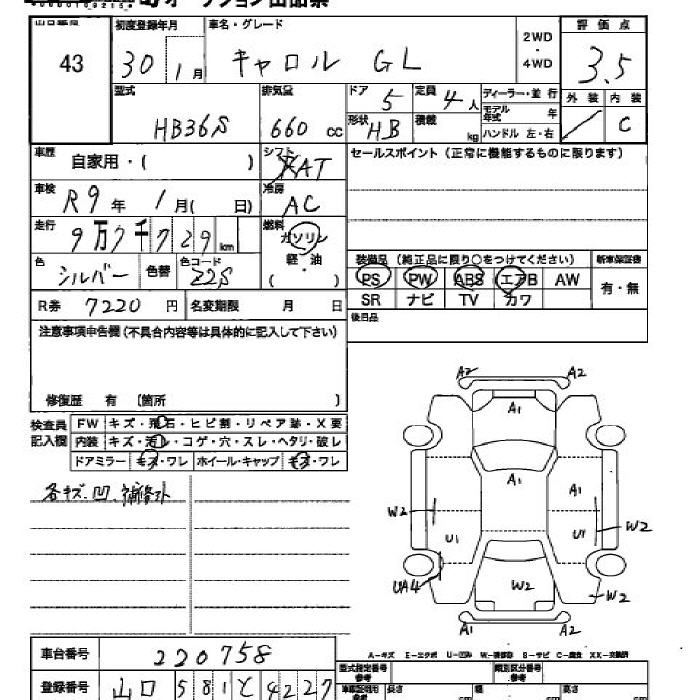 オークション出品票
43 初度登録年月 30 1月 車名・グレード キャロル GL 2WD・4WD 評価点 3.5
型式 HB36S 排気量 660 cc ドア 5 定員 4人 ディーラー・並行 外装 内装 C
形状 HB 積載 kg モデル年式 年 ハンドル 左・右
車歴 自家用・( ) シフト AT セールスポイント(正常に機能するものに限ります)
車検 R9年 1月( 日) 冷房 AC
走行 9万7千729km 燃料 ガソリン 軽・油 ( )
装備品(純正品に限り○をつけてください) 新車保証書
色 シルバー 色替 色コード Z2S PS PW ABS エアB AW 有・無
SR ナビ TV カワ
R券 7220円 名変期限 月 日 後日品
注意事項申告欄(不具合内容等は具体的に記入して下さい)
修復歴 有 〔箇所 〕
検査員記入欄 FW キズ・飛石・ヒビ割・リペア跡・X要
内装 キズ・汚レ・コゲ・穴・スレ・ヘタリ・破レ
ドアミラー キズ・ワレ ホイール・キャップ キズ・ワレ
各キズ、凹、補修ヌト
A2 A2
A1
A1 A1
W2 W2
U1 U1
UA4 W2 W2
A2 A2
A-キズ E-エクボ U-凹み W-補修跡 S-サビ C-腐食 XX-交換済
車台番号 220758 型式指定番号 参考 類別区分番号 参考
登録番号 山口 581 と 4227 車車証明用 参考 長さ cm 幅 cm 高さ cm